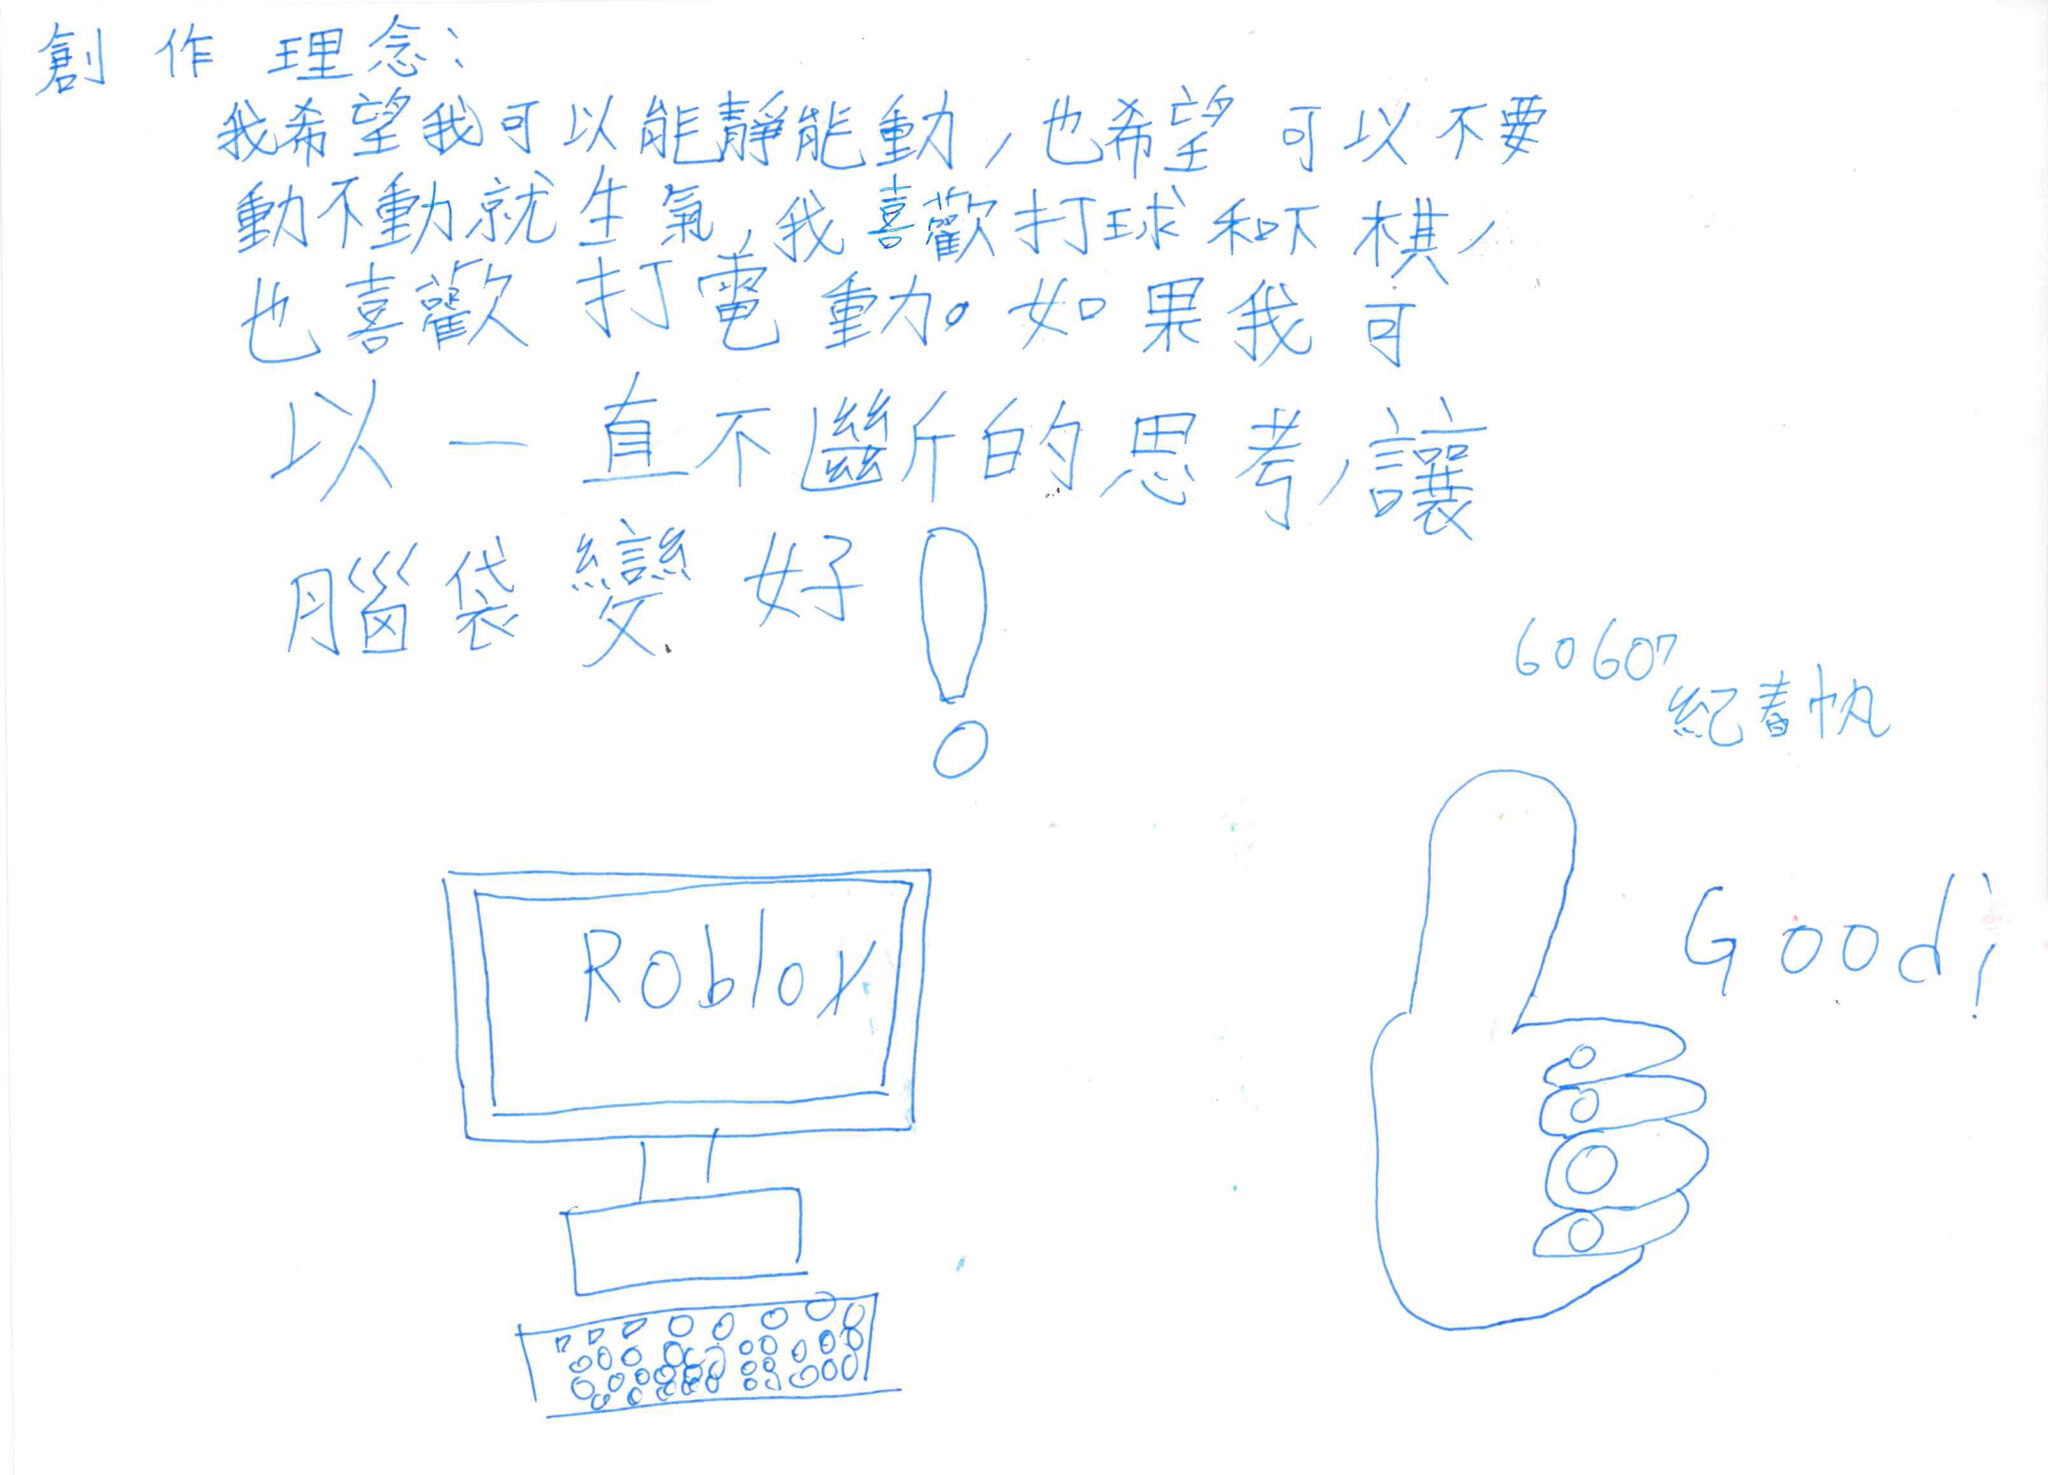 創作理念：
我希望我可以能靜能動，也希望可以不要
動不動就生氣，我喜歡打球和下棋，
也喜歡打電動。如果我可
以一直不斷的思考，讓
腦袋變好！
60607
紀春帆
Roblox
Good！